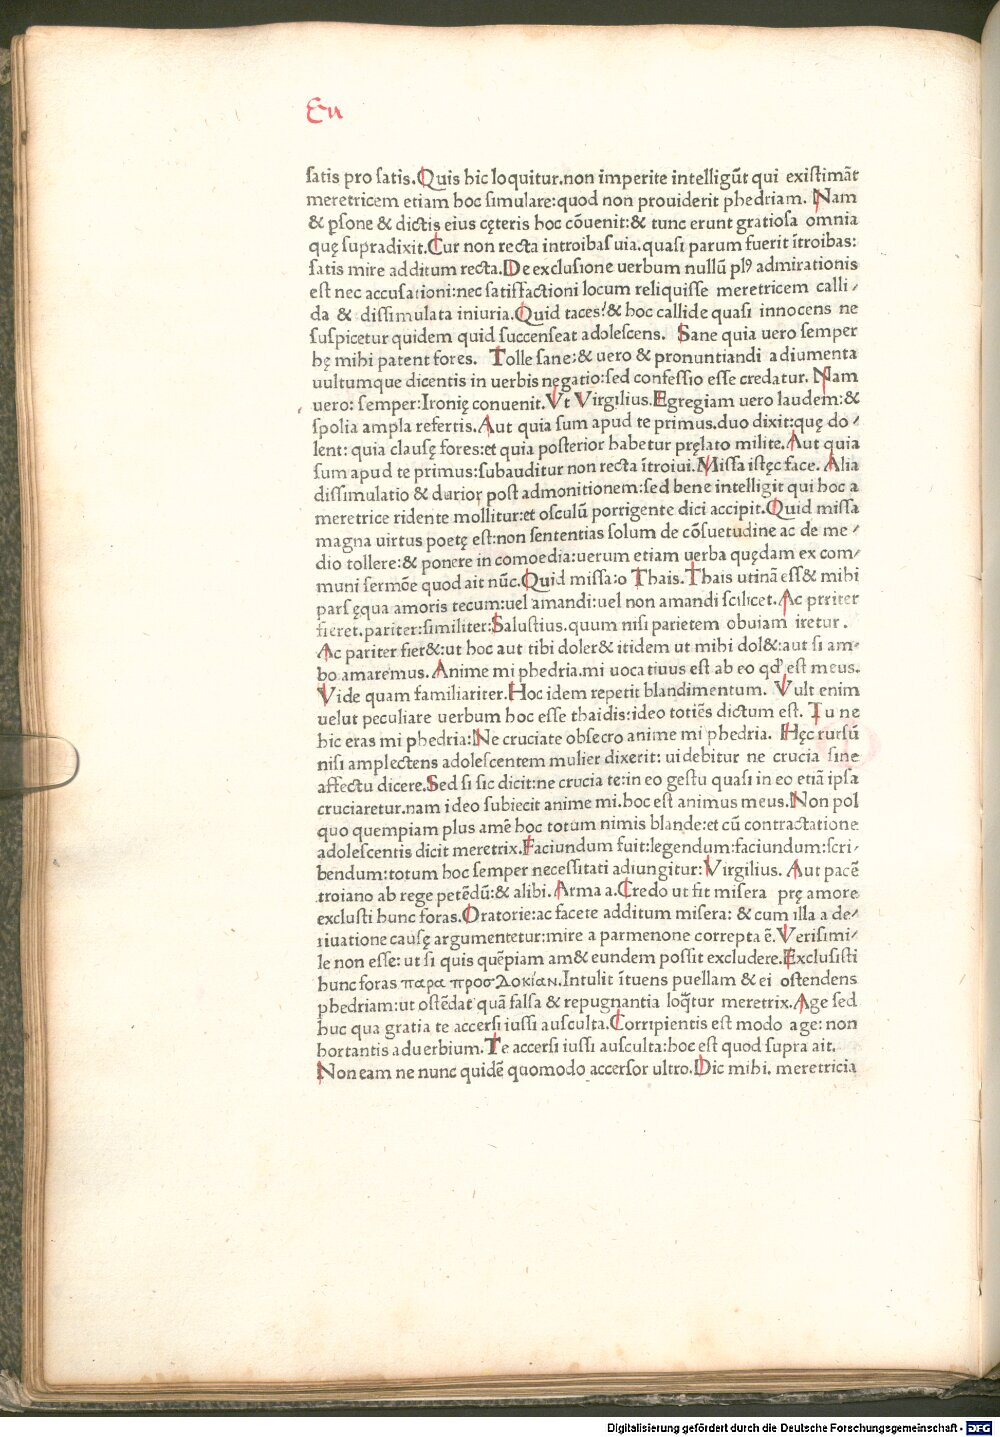 Eu
satis pro satis.Quis hic loquitur.non imperite intelligūt qui existimāt
meretricem etiam hoc simulare:quod non prouiderit phedriam. Nam
& psone & dictis eius cęteris hoc cōuenit:& tunc erunt gratiosa omnia
quę supradixit.Cur non recta introibas uia.quasi parum fuerit ītroibas:
satis mire additum recta.De exclusione uerbum nullū plꝰ admirationis
est nec accusationi:nec satisfactioni locum reliquisse meretricem calli/
da & dissimulata iniuria.Quid taces?& hoc callide quasi innocens ne
suspicetur quidem quid succenseat adolescens. Sane quia uero semper
hę mihi patent fores. Tolle sane:& uero & pronuntiandi adiumenta
uultumque dicentis in uerbis negatio:sed confessio esse credatur. Nam
uero: semper:Ironię conuenit.Vt Virgilius.Egregiam uero laudem:&
spolia ampla refertis.Aut quia sum apud te primus.duo dixit:quę do/
lent: quia clausę fores:et quia posterior habetur pręlato milite.Aut quia
sum apud te primus:subauditur non recta ītroiui.Missa istęc face. Alia
dissimulatio & durior post admonitionem:sed bene intelligit qui hoc a
meretrice ridente mollitur:et osculū porrigente dici accipit.Quid missa
magna uirtus poetę est:non sententias solum de cōsuetudine ac de me/
dio tollere:& ponere in comoedia:uerum etiam uerba quędam ex com/
muni sermōe quod ait nūc.Quid missa:o Thais.Thais utinā ess& mihi
pars ęqua amoris tecum:uel amandi:uel non amandi scilicet.Ac prriter
fieret.pariter:similiter:Salustius.quum nisi parietem obuiam iretur.
Ac pariter fier&:ut hoc aut tibi doler& itidem ut mihi dol&:aut si am/
bo amaremus. Anime mi phedria.mi uocatiuus est ab eo qđ est meus.
Vide quam familiariter.Hoc idem repetit blandimentum. Vult enim
uelut peculiare uerbum hoc esse thaidis:ideo totiēs dictum est. Tu ne
hic eras mi phedria:Ne cruciate obsecro anime mi phedria. Hęc rursū
nisi amplectens adolescentem mulier dixerit: uidebitur ne crucia sine
affectu dicere.Sed si sic dicit:ne crucia te:in eo gestu quasi in eo etiā ipsa
cruciaretur.nam ideo subiecit anime mi.hoc est animus meus.Non pol
quo quempiam plus amē hoc totum nimis blande:et cū contractatione
adolescentis dicit meretrix.Faciundum fuit:legendum:faciundum:scri/
bendum:totum hoc semper necessitati adiungitur:Virgilius. Aut pacē
troiano ab rege petēdū:& alibi.Arma a.Credo ut fit misera prę amore
exclusti hunc foras.Oratorie:ac facete additum misera: & cum illa a de/
riuatione causę argumentetur:mire a parmenone correpta ē.Verisimi/
le non esse: ut si quis quēpiam am& eundem possit excludere.Exclusisti
hunc foras παρα προσδοκίαν.Intulit ītuens puellam & ei ostendens
phedriam:ut ostēdat quā falsa & repugnantia loq̄tur meretrix.Age sed
huc qua gratia te accersi iussi ausculta.Corripientis est modo age: non
hortantis aduerbium.Te accersi iussi ausculta:hoc est quod supra ait.
Non eam ne nunc quidē quomodo accersor ultro.Dic mihi. meretricia
Digitalisierung gefördert durch die Deutsche Forschungsgemeinschaft - DFG